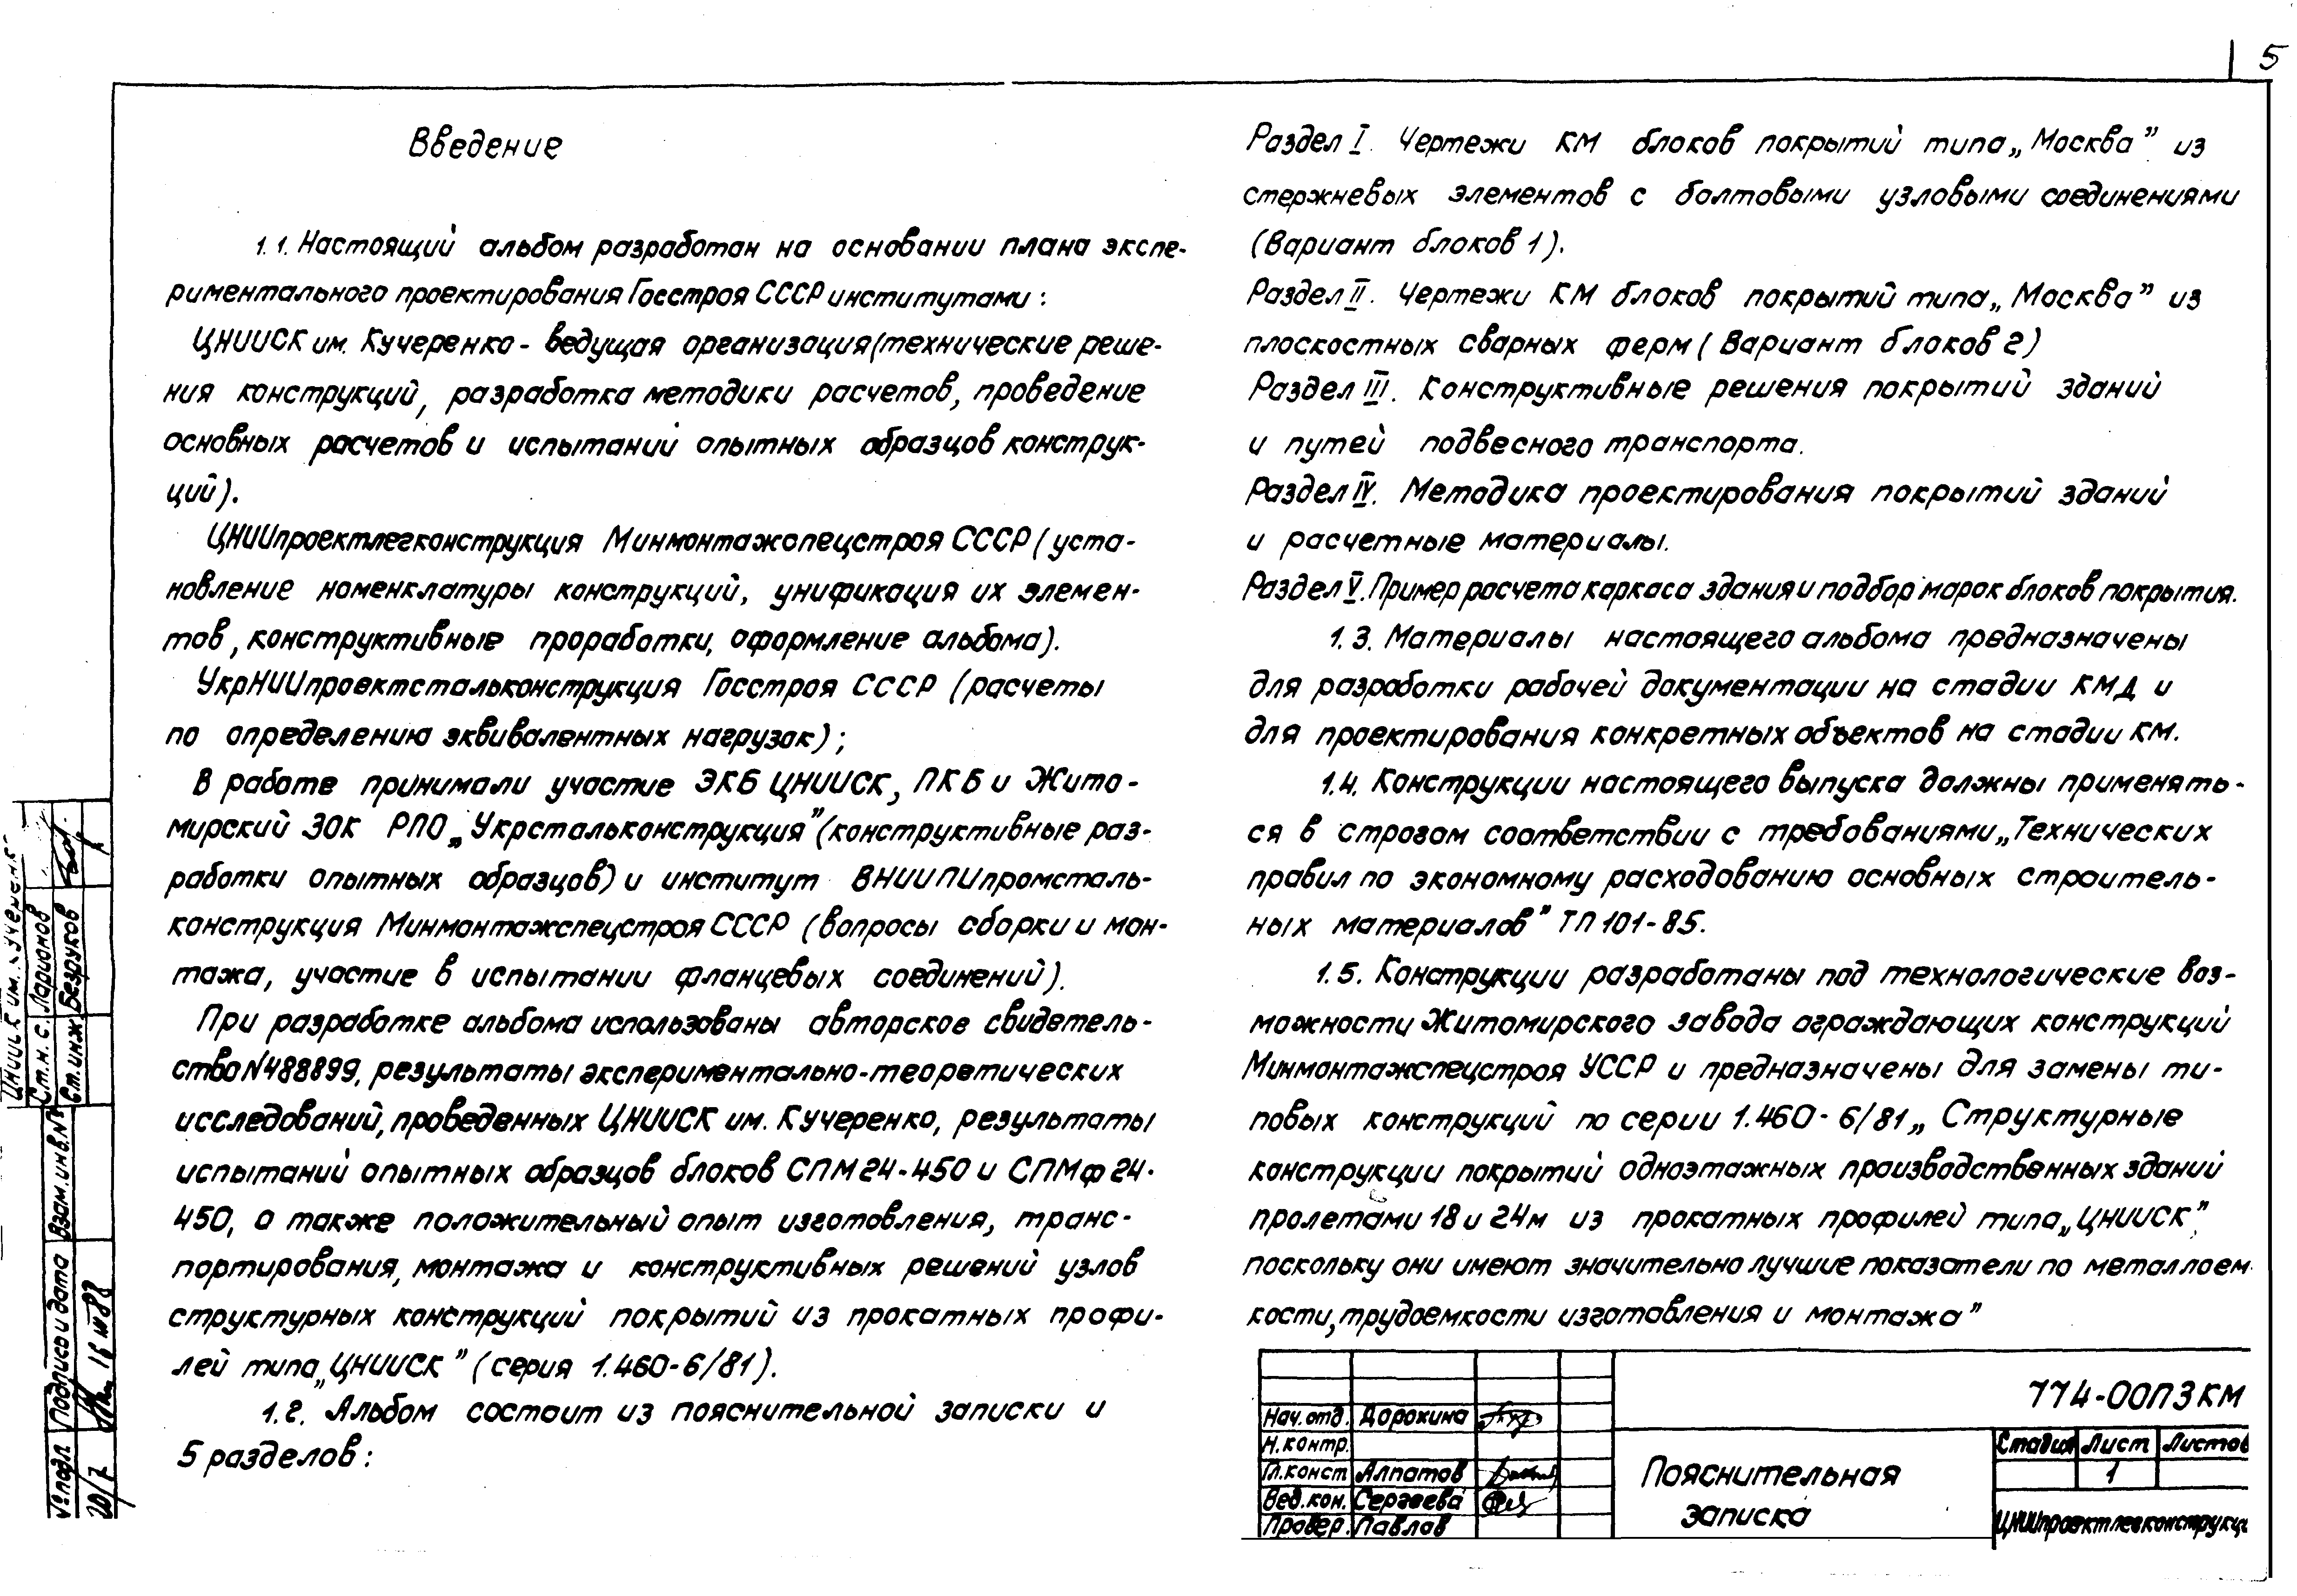 5
Введение
1.1. Настоящий альбом разработан на основании плана экспе-
риментального проектирования Госстроя СССР институтами:
ЦНИИСК им. Кучеренко - ведущая организация (технические реше-
ния конструкций, разработка методики расчетов, проведение
основных расчетов и испытаний опытных образцов конструк-
ций).
ЦНИИпроектлегконструкция Минмонтажспецстроя СССР (уста-
новление номенклатуры конструкций, унификация их элемен-
тов, конструктивные проработки, оформление альбома).
УкрНИИпроектстальконструкция Госстроя СССР (расчеты
по определению эквивалентных нагрузок);
В работе принимали участие ЭКБ ЦНИИСК, ПКБ и Жито-
мирский ЗОК РПО „Укрстальконструкция" (конструктивные раз-
работки опытных образцов) и институт ВНИИПИпромсталь-
конструкция Минмонтажспецстроя СССР (вопросы сборки и мон-
тажа, участие в испытании фланцевых соединений).
При разработке альбома использованы авторское свидетель-
ство N488899, результаты экспериментально-теоретических
исследований, проведенных ЦНИИСК им. Кучеренко, результаты
испытаний опытных образцов блоков СПМ24-450 и СПМФ24-
450, а также положительный опыт изготовления, транс-
портирования, монтажа и конструктивных решений узлов
структурных конструкций покрытий из прокатных профи-
лей типа „ЦНИИСК" (серия 1.460-6/81).
1.2. Альбом состоит из пояснительной записки и
5 разделов:
Раздел I. Чертежи КМ блоков покрытий типа „Москва" из
стержневых элементов с болтовыми узловыми соединениями
(Вариант блоков 1).
Раздел II. Чертежи КМ блоков покрытий типа „Москва" из
плоскостных сварных ферм (Вариант блоков 2)
Раздел III. Конструктивные решения покрытий зданий
и путей подвесного транспорта.
Раздел IV. Методика проектирования покрытий зданий
и расчетные материалы.
Раздел V. Пример расчета каркаса здания и подбор марок блоков покрытия.
1.3. Материалы настоящего альбома предназначены
для разработки рабочей документации на стадии КМД и
для проектирования конкретных объектов на стадии КМ.
1.4. Конструкции настоящего выпуска должны применять-
ся в строгом соответствии с требованиями „Технических
правил по экономному расходованию основных строитель-
ных материалов" ТП 101-85.
1.5. Конструкции разработаны под технологические воз-
можности Житомирского завода ограждающих конструкций
Минмонтажспецстроя УССР и предназначены для замены ти-
повых конструкций по серии 1.460-6/81 „Структурные
конструкции покрытий одноэтажных производственных зданий
пролетами 18 и 24м из прокатных профилей типа „ЦНИИСК",
поскольку они имеют значительно лучшие показатели по металлоем-
кости, трудоемкости изготовления и монтажа"
774-00ПЗКМ
Нач. отд. Дорохина
Н. контр.
Гл. конст Алпатов
Вед. кон. Сергеева
Провер. Павлов
Пояснительная
записка
Стадия Лист Листов
1
ЦНИИпроектлегконструкц
ЦНИИСК им.
Ст. н. с. Ларионов
Ст. инж. Безруков
Взам. инв. №
Подпись и дата
№ подл